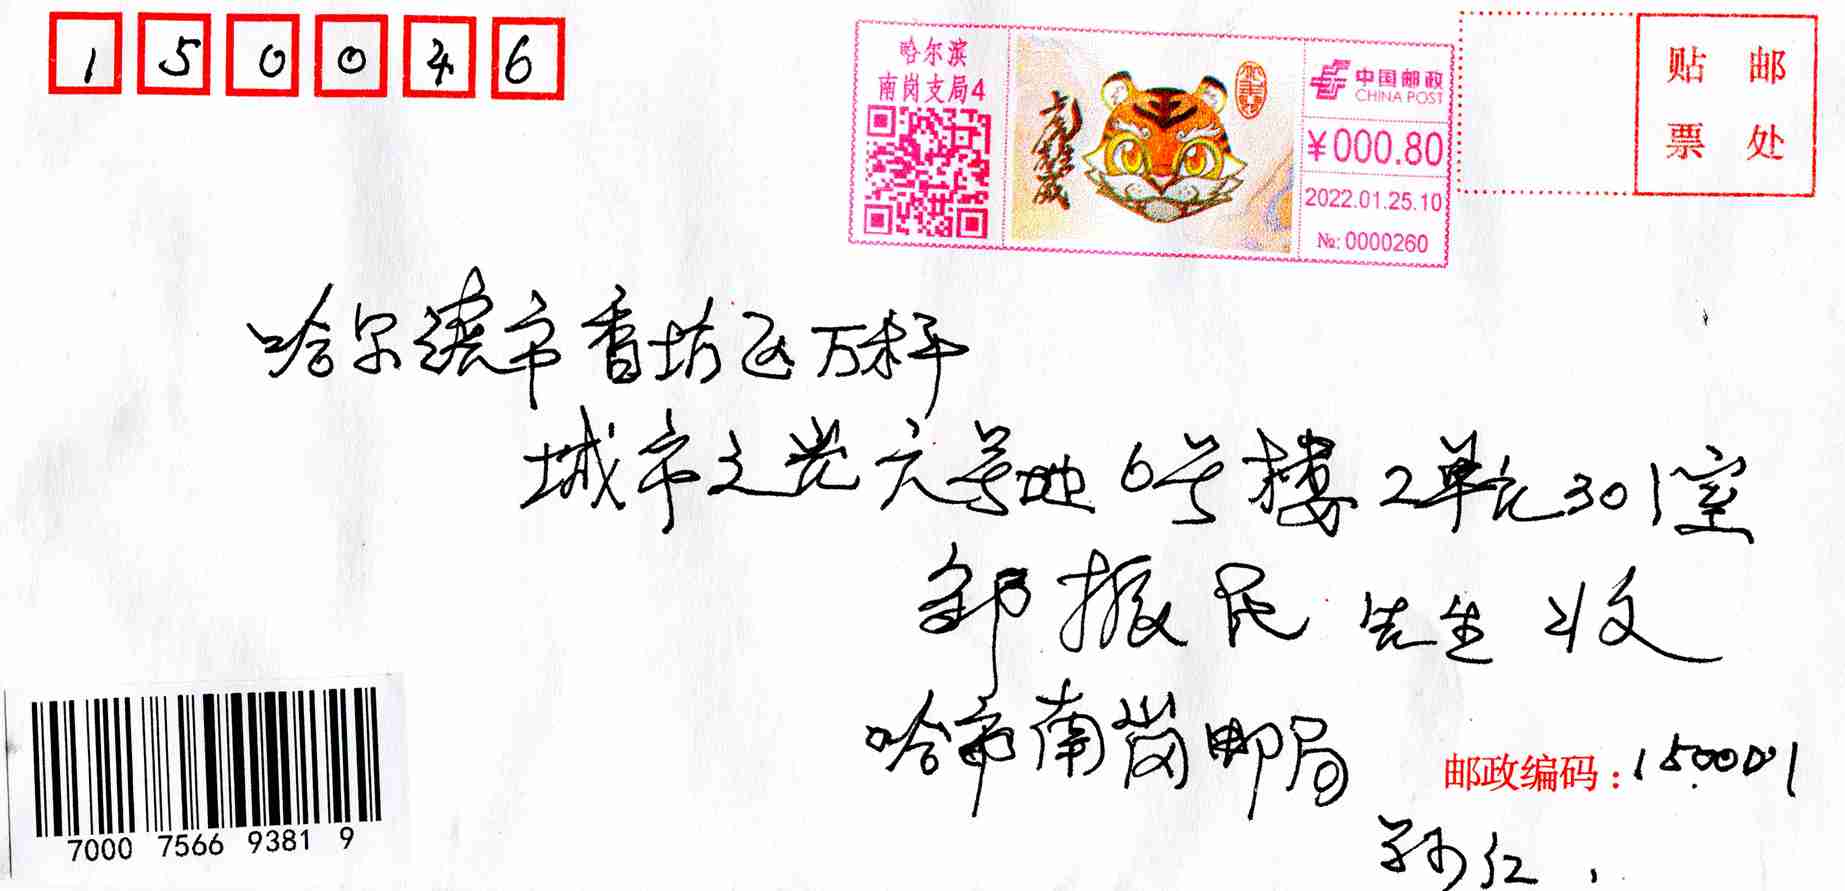 150046
哈尔滨
南岗支局4
虎虎生威
中国邮政
CHINA POST
¥000.80
2022.01.25.10
№: 0000260
贴 邮
票 处
哈尔滨市香坊区万科
城市之光六号地6号楼2单元301室
邹振民 先生 收
哈市南岗邮局
邮政编码：150001
孙红
7000 7566 9381 9